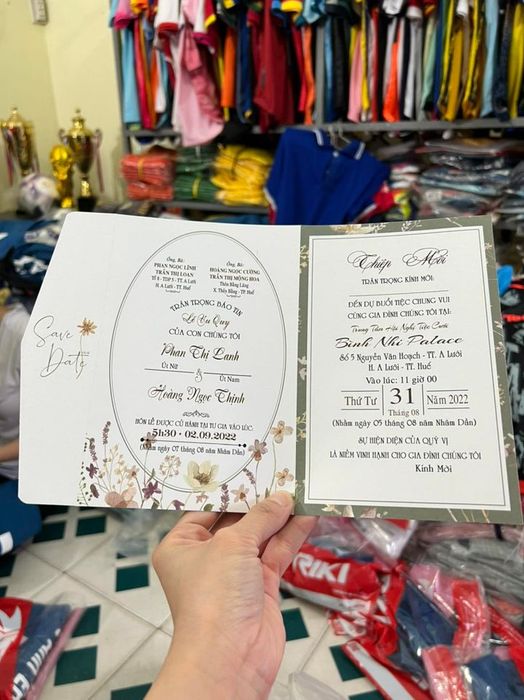 Save
Date
Ông, Bà:
PHAN NGỌC LĨNH
TRẦN THỊ LOAN
Tổ 8 - TDP 5 - TT. A Lưới
H. A Lưới - TT. Huế
Ông, Bà:
HOÀNG NGỌC CƯỜNG
TRẦN THỊ MỘNG HOA
Thôn Bằng Lãng
X. Thủy Bằng - TP. Huế
TRÂN TRỌNG BÁO TIN
Lễ Vu Quy
CỦA CON CHÚNG TÔI
Phan Thị Lanh
Út Nữ
&
Út Nam
Hoàng Ngọc Thịnh
HÔN LỄ ĐƯỢC CỬ HÀNH TẠI TƯ GIA VÀO LÚC:
5h30 • 02.09.2022
(Nhằm ngày 07 tháng 08 năm Nhâm Dần)
Thiệp Mời
TRÂN TRỌNG KÍNH MỜI:
ĐẾN DỰ BUỔI TIỆC CHUNG VUI
CÙNG GIA ĐÌNH CHÚNG TÔI TẠI:
Trung Tâm Hội Nghị Tiệc Cưới
Bình Nhi Palace
Số 5 Nguyễn Văn Hoạch - TT. A Lưới
H. A Lưới - TT. Huế
Vào lúc: 11 giờ 00
Thứ Tư
31
Tháng 08
Năm 2022
(Nhằm ngày 05 tháng 08 năm Nhâm Dần)
SỰ HIỆN DIỆN CỦA QUÝ VỊ
LÀ NIỀM VINH HẠNH CHO GIA ĐÌNH CHÚNG TÔI
Kính Mời
RIKI